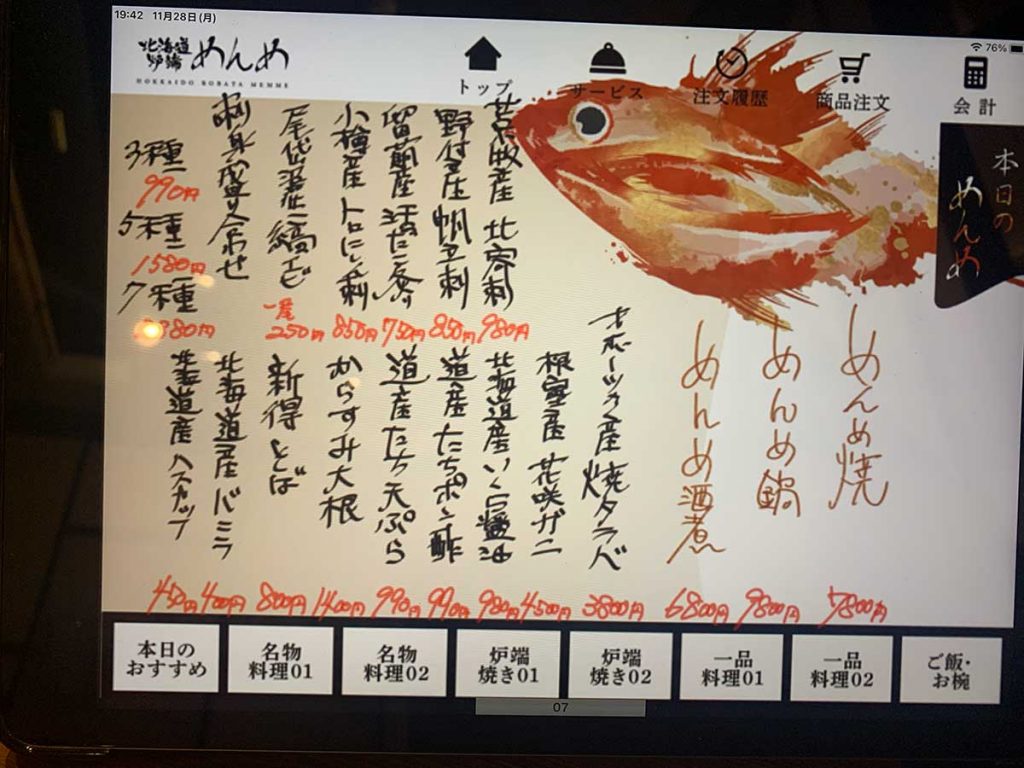 19:42 11月28日(月)
76%
北海道
炉端
めんめ
HOKKAIDO ROBATA MEMME
トップ
サービス
注文履歴
商品注文
会計
本日の
めんめ
めんめ焼
7800円
めんめ鍋
9800円
めんめ酒煮
6800円
オホーツク産 焼タラバ
3800円
根室産 花咲ガニ
4500円
産 北寄刺
980円
野付産 帆立刺
850円
留萌産 活だこ
750円
小樽産 トロにしん刺
850円
尾岱沼 北海縞えび
一尾
250円
刺身盛り合わせ
3種
990円
5種
1580円
7種
80円
北海道産 いくら醤油
980円
道産 たちポン酢
990円
道産 たち天ぷら
990円
からすみ大根
1400円
新得 とば
800円
北海道産 バニラ
400円
北海道産 ハスカップ
450円
本日の
おすすめ
名物
料理01
名物
料理02
炉端
焼き01
炉端
焼き02
一品
料理01
一品
料理02
ご飯・
お椀
07